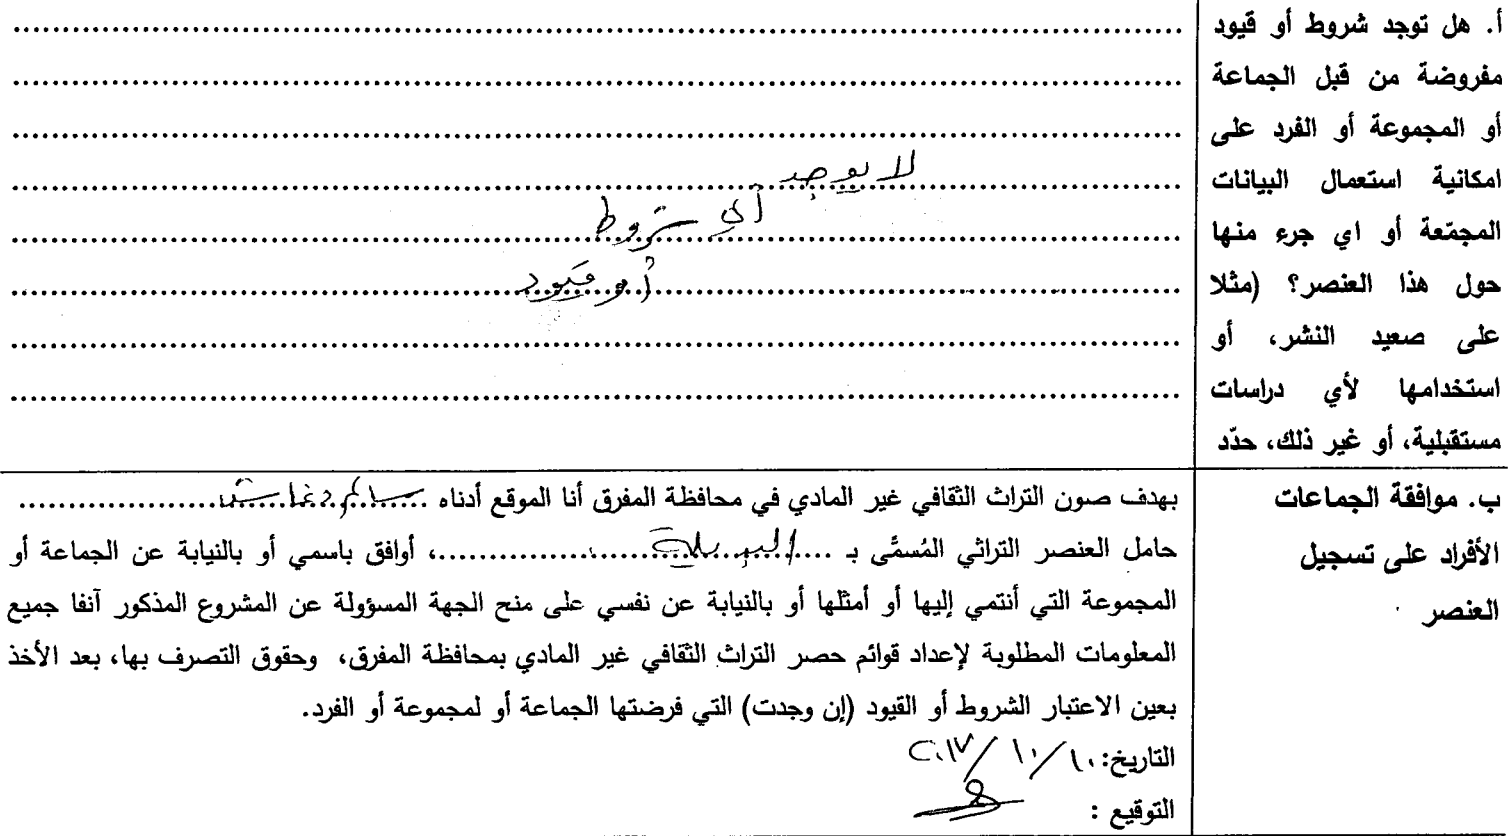 أ. هل توجد شروط أو قيود
مفروضة من قبل الجماعة
أو المجموعة أو الفرد على
امكانية استعمال البيانات
المجمّعة أو اي جرء منها
حول هذا العنصر؟ (مثلا
على صعيد النشر، أو
استخدامها لأي دراسات
مستقبلية، أو غير ذلك، حدّد
لا يوجد
أي شروط
أو قيود
ب. موافقة الجماعات
الأفراد على تسجيل
العنصر
بهدف صون التراث الثقافي غير المادي في محافظة المفرق أنا الموقع أدناه سالم
حامل العنصر التراثي المُسمَّى بـ ، أوافق باسمي أو بالنيابة عن الجماعة أو
المجموعة التي أنتمي إليها أو أمثلها أو بالنيابة عن نفسي على منح الجهة المسؤولة عن المشروع المذكور آنفا جميع
المعلومات المطلوبة لإعداد قوائم حصر التراث الثقافي غير المادي بمحافظة المفرق، وحقوق التصرف بها، بعد الأخذ
بعين الاعتبار الشروط أو القيود (إن وجدت) التي فرضتها الجماعة أو لمجموعة أو الفرد.
التاريخ: ١٠/١٠/٢٠١٧
التوقيع :